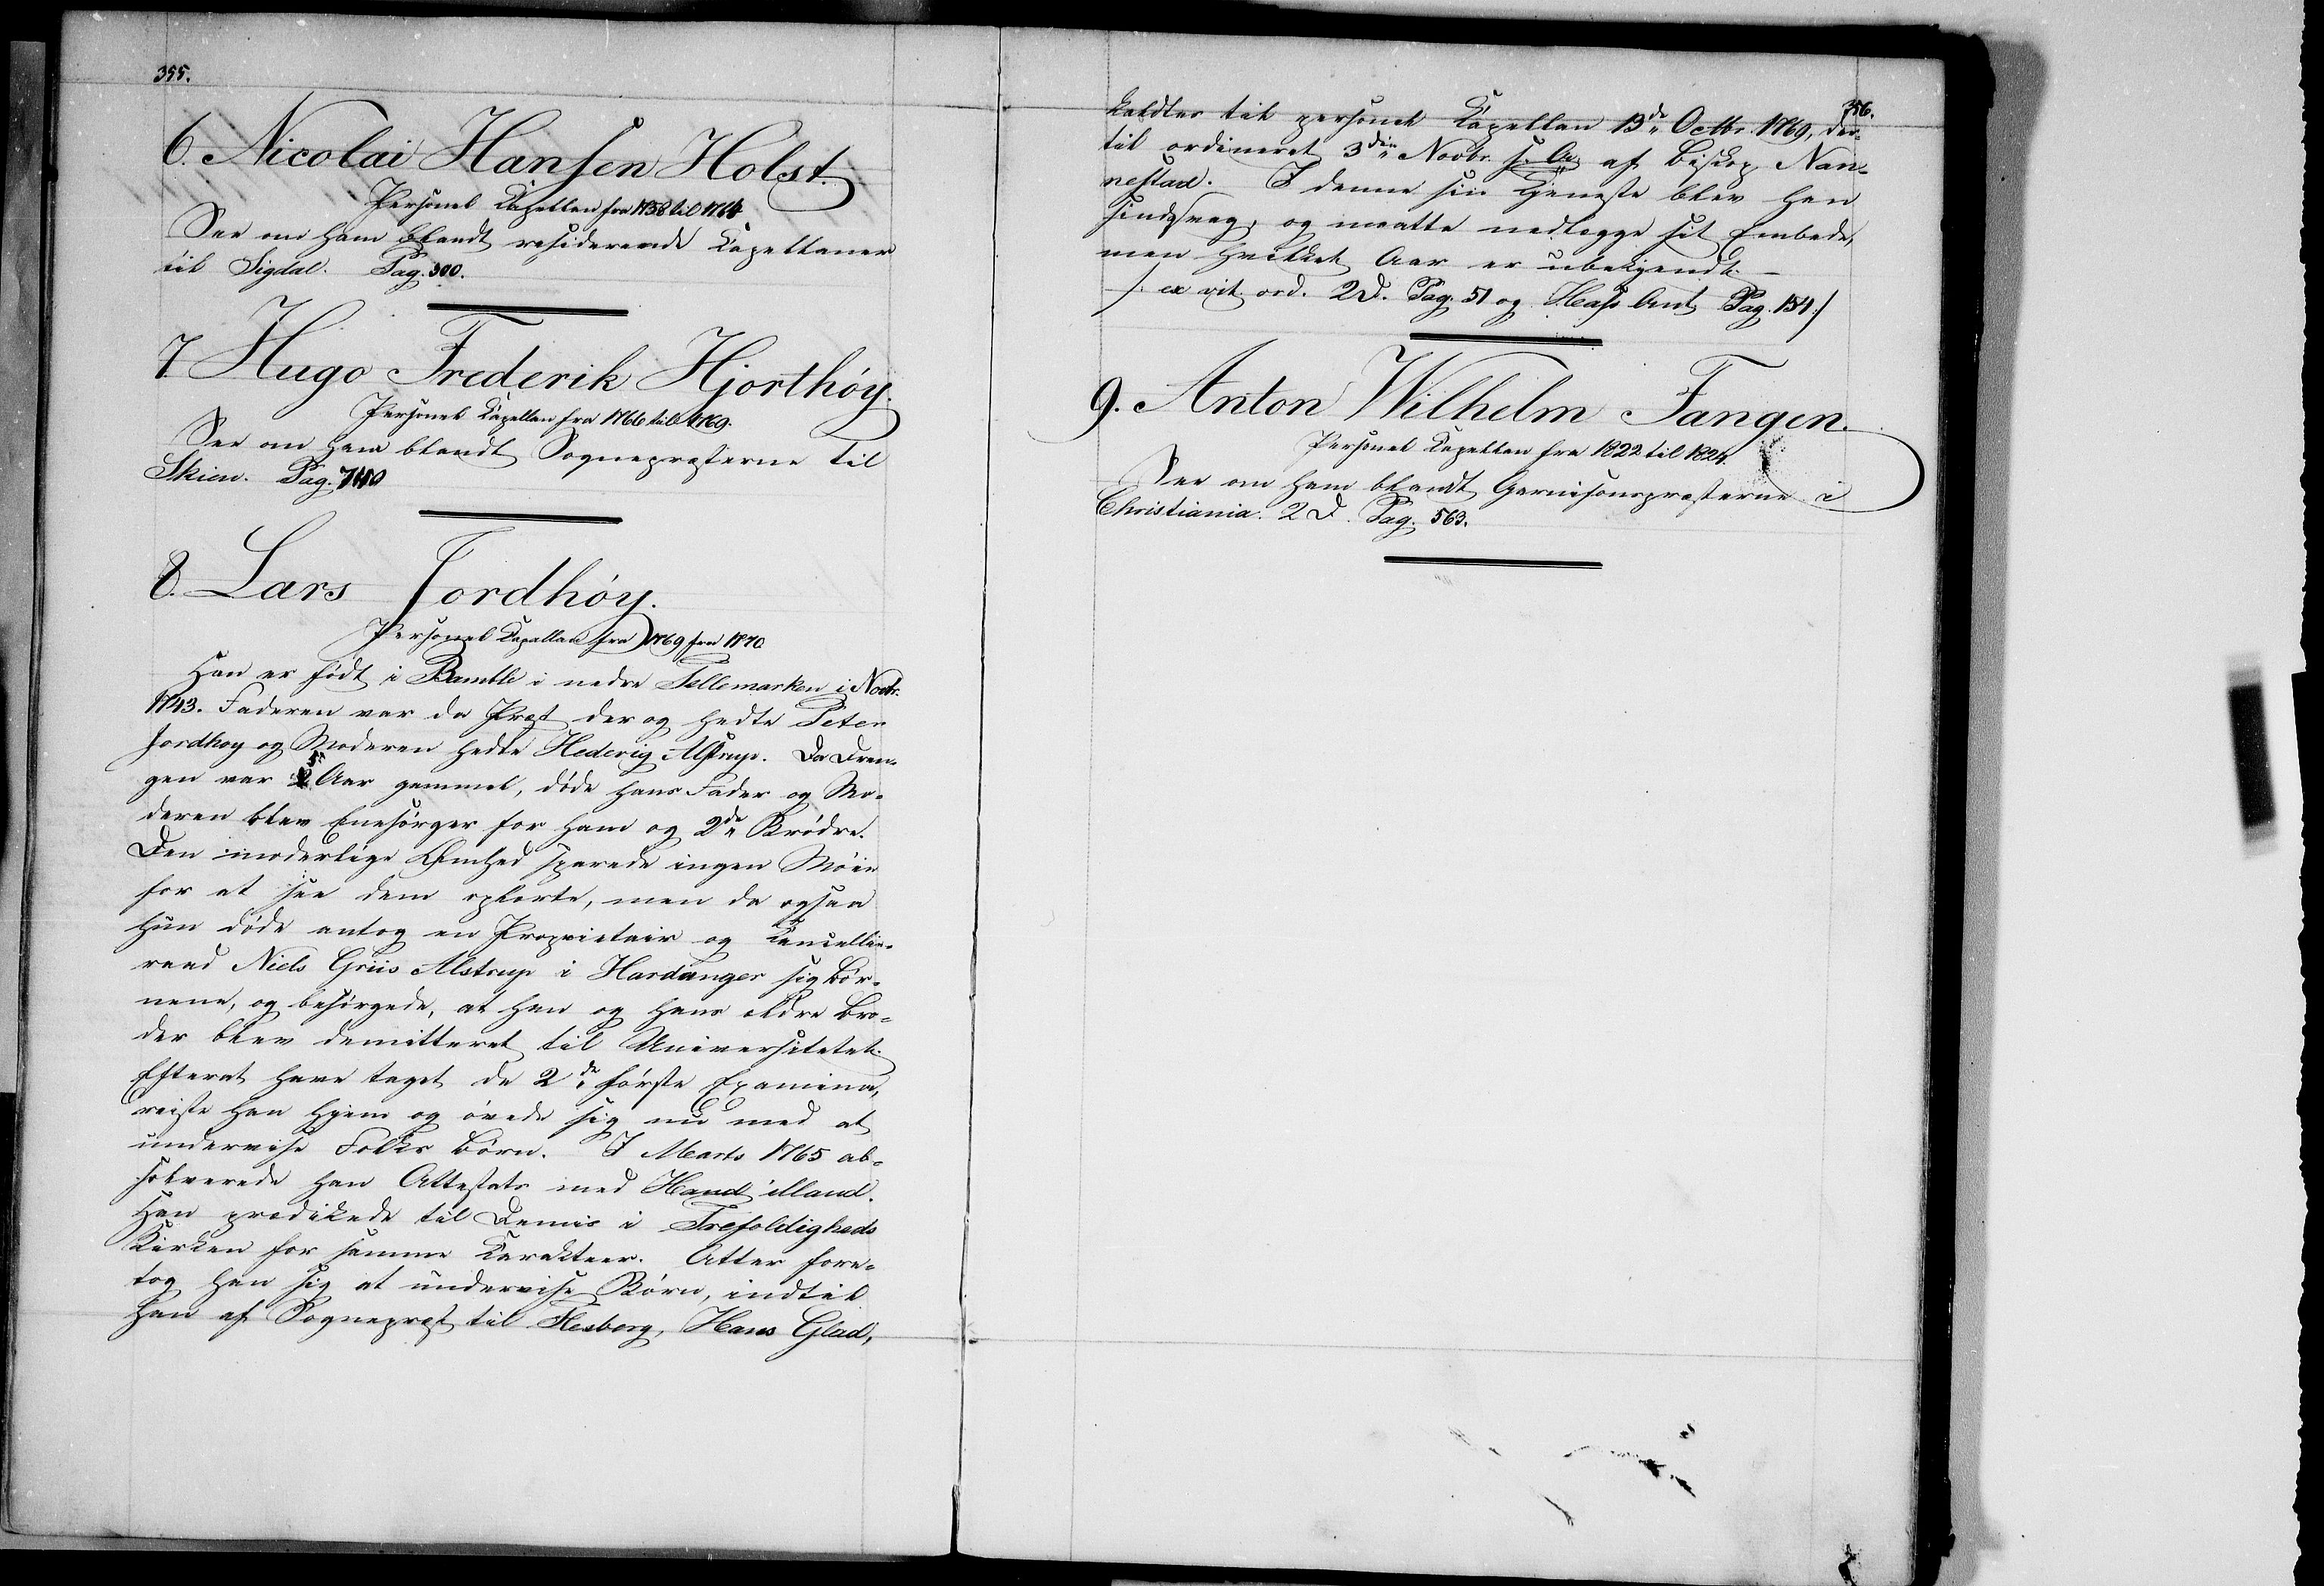 355.
6. Nicolai Hansen Holst.
Personel Kapellan fra 1758 til 1764
See om ham blandt residerende Kapellaner
til Sigdal. Pag. 300.
7. Hugo Frederik Hjorthöy.
Personel Kapellan fra 1766 til 1769.
See om ham blandt Sognepræsterne til
Skien. Pag. 740
8. Lars Jordhöy.
Personel Kapellan fra 1769 fra 1770
Han er født i Bamble i nedre Tellemarken i Novbr.
1743. Faderen var da Præst der og hedte Peter
Jordhoy og Moderen hedte Hedevig Alstrup. Da Dren-
gen var Aar gammel, döde hans Fader og Mo-
deren blev Enesörger for ham og 2de Brödre.
Den moderlige Ömhed sparede ingen Möie
for at see dem oplærte, men da ogsaa
hun döde antog en Proprietair og Kancellie-
raad Niels Griis Alstrup i Hardanger sig Bör-
nene, og besörgede, at han og hans ældre Bro-
der blev demitteret til Universitetet.
Efterat have taget de 2de förste Examina,
reiste han hjem og övede sig nu med at
undervise Folks Börn. I Marts 1765 ab-
solverede han Attestats med Haud illaud.
Han prædikede til Demis i Trefoldigheds
Kirken for samme Karakteer. Atter fore-
tog han sig at undervise Börn, indtil
han af Sognepræst til Flesberg, Hans Glad,
356.
kaldtes til personel Kapellan 13de Octbr. 1769, der-
til ordineret 3die Novbr. s. A. af Biskop Nan-
nestad. I denne sin Tjeneste blev han
sindssvag, og maatte nedlægge sit Embede,
men hvilket Aar er ubekjendt. –
/: ex vit. ord. 2D. Pag. 51 og Hass Ant. Pag. 154 :/
9. Anton Wilhelm Fangen.
Personel Kapellan fra 1822 til 1824.
See om ham blandt Garnisonspræsterne i
Christiania. 2 D. Pag. 563.